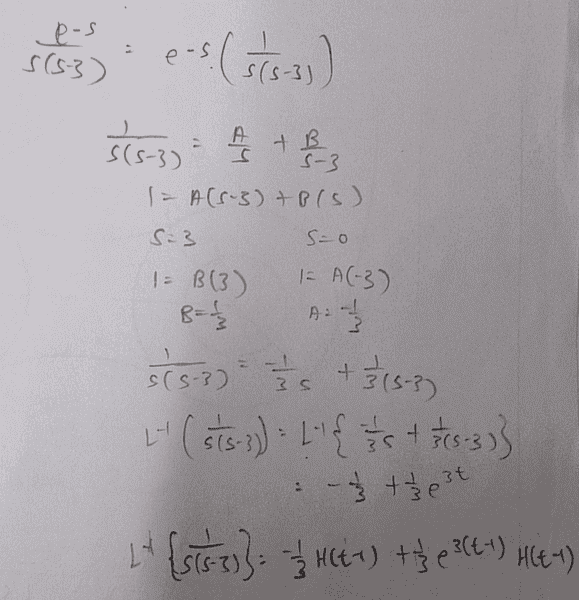 e-s / s(s-3) = e-s. ( 1 / s(s-3) )
1 / s(s-3) = A / s + B / s-3
1 = A(s-3) + B(s)
s=3 s=0
1= B(3) 1= A(-3)
B=1/3 A= -1/3
1 / s(s-3) = -1 / 3s + 1 / 3(s-3)
L-1 ( 1 / s(s-3) ) = L-1 { -1 / 3s + 1 / 3(s-3) }
= -1/3 + 1/3 e3t
L-1 { 1 / s(s-3) } = -1/3 H(t-1) + 1/3 e3(t-1) H(t-1)